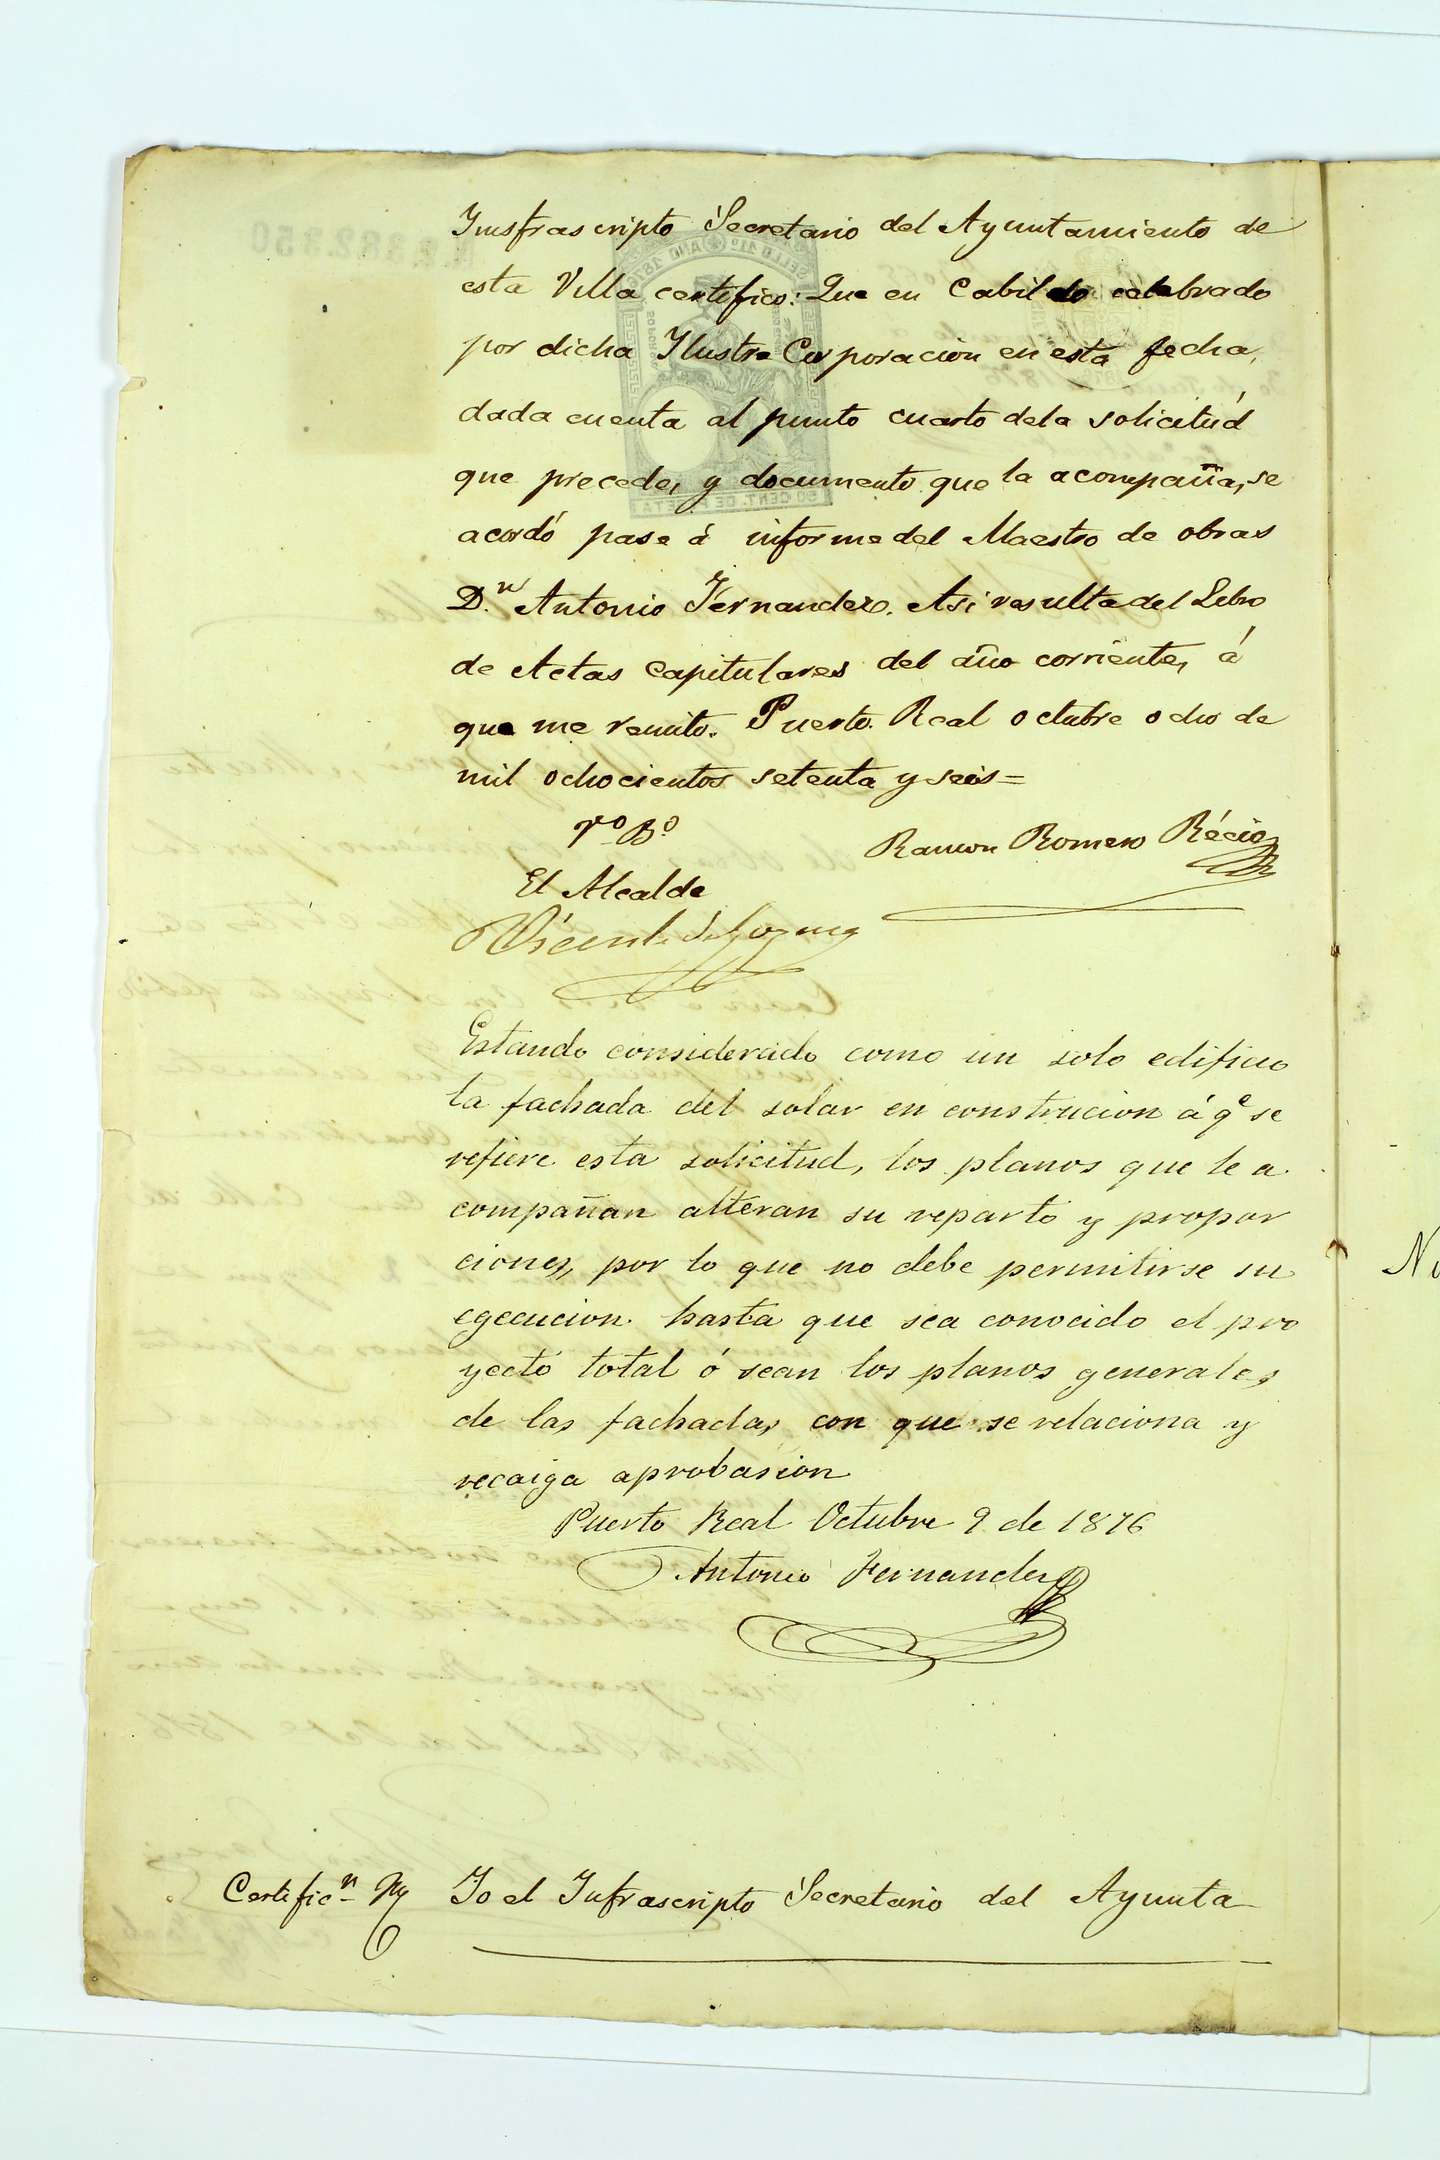 Insfrascripto Secretario del Ayuntamiento de
esta Villa certifico: Que en Cabildo celebrado
por dicha Ilustre Corporacion en esta fecha,
dada cuenta al punto cuarto dela solicitúd
que precede, y documento que la acompaña, se
acordó pase á informe del Maestro de obras
D.n Antonio Fernandez. Asi resulta del Libro
de Actas Capitulares del año corriente, á
que me remito. Puerto Real octubre ocho de
mil ochocientos setenta y seis=
Vº Bº
Ramon Romero Récio
El Alcalde
Vicente
Estando considerado como un solo edificio
la fachada del solar en construcion á qe se
refiere esta solicitud, los planos que le a
compañan alteran su reparto y propor
ciones, por lo que no debe permitirse su
egecucion hasta que sea conocido el pro
yecto total ó sean los planos generales
de las fachadas con que se relaciona y
recaiga aprobasion
Puerto Real Octubre 9 de 1876
Antonio Fernandez
Certificn Yo el Infrascripto Secretario del Ayunta